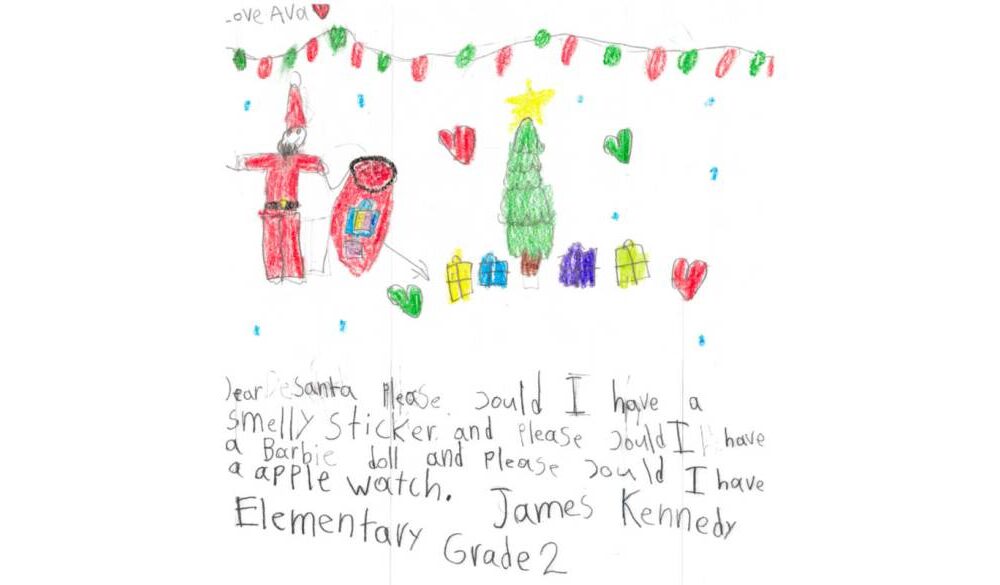 Love Ava
Dear Santa Please could I have a
smelly sticker. and Please could I have
a Barbie doll and Please could I have
a apple watch. James Kennedy
Elementary Grade 2